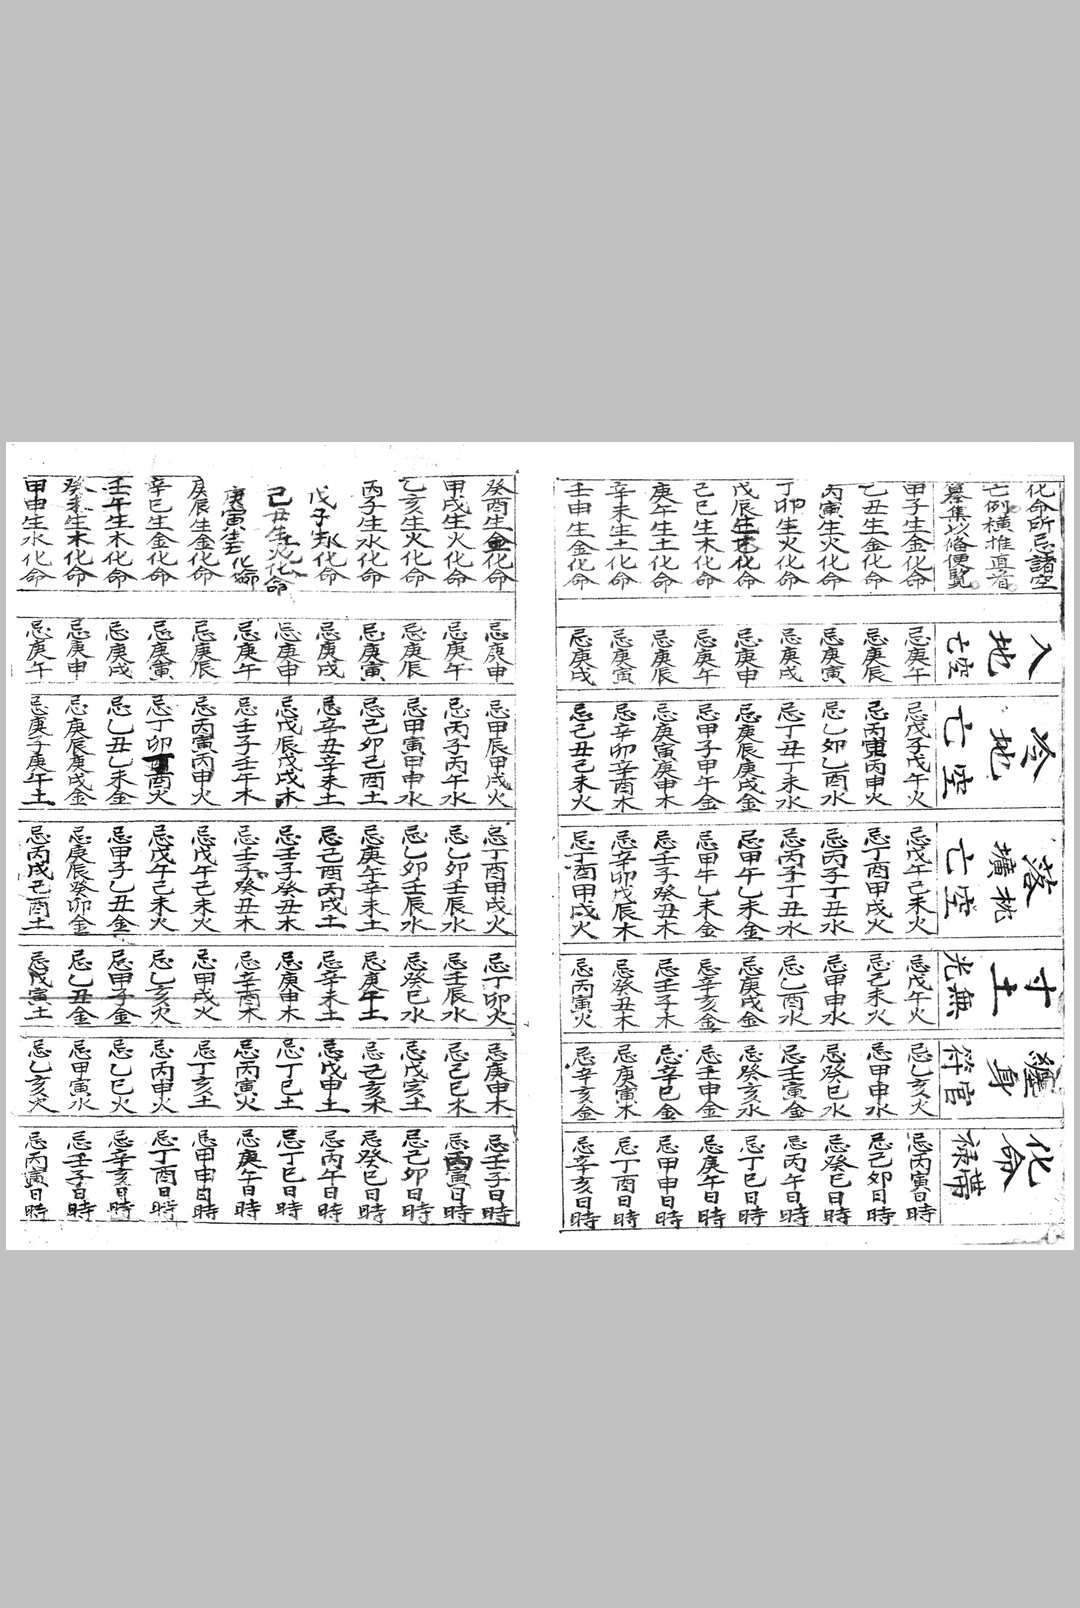 化命所忌諸空
亡例橫推直看
纂集以俻便覽
入地空亡
冷地空亡
落壙枕空亡
寸土無光
纏身官符
化命帶禄
甲子生金化命 忌庚午 忌戊子戊午火 忌戊午己未火 忌戊午火 忌乙亥火 忌丙寅日時
乙丑生金化命 忌庚辰 忌丙寅丙申火 忌丁酉甲戌火 忌己未火 忌甲申水 忌己卯日時
丙寅生火化命 忌庚寅 忌乙卯乙酉水 忌丙子丁丑水 忌甲申水 忌癸巳水 忌癸巳日時
丁卯生火化命 忌庚戌 忌丁丑丁未水 忌丙子丁丑水 忌乙酉水 忌壬寅金 忌丙午日時
戊辰生木化命 忌庚申 忌庚辰庚戌金 忌甲午乙未金 忌庚戌金 忌癸亥水 忌丁巳日時
己巳生木化命 忌庚午 忌甲子甲午金 忌甲午乙未金 忌辛亥金 忌壬申金 忌庚午日時
庚午生土化命 忌庚辰 忌庚寅庚申木 忌壬子癸丑木 忌壬子木 忌辛巳金 忌甲申日時
辛未生土化命 忌庚寅 忌辛卯辛酉木 忌辛卯戊辰木 忌癸丑木 忌庚寅木 忌丁酉日時
壬申生金化命 忌庚戌 忌己丑己未火 忌丁酉甲戌火 忌丙寅火 忌辛亥金 忌辛亥日時
癸酉生金化命 忌庚申 忌甲辰甲戌火 忌丁酉甲戌火 忌丁卯火 忌庚申木 忌壬子日時
甲戌生火化命 忌庚午 忌丙子丙午水 忌乙卯壬辰水 忌壬辰水 忌己巳木 忌丙寅日時
乙亥生火化命 忌庚辰 忌甲寅甲申水 忌乙卯壬辰水 忌癸巳水 忌戊寅土 忌己卯日時
丙子生水化命 忌庚寅 忌己卯己酉土 忌庚午辛未土 忌庚午土 忌己亥木 忌癸巳日時
戊子生 水化命 忌庚戌 忌辛丑辛未土 忌己酉丙戌土 忌辛未土 忌戊申土 忌丙午日時
己丑生火化命 忌庚申 忌戊辰戊戌木 忌壬子癸丑木 忌庚申木 忌丁巳土 忌丁巳日時
庚寅生 化命 忌庚午 忌壬子壬午木 忌壬子癸丑木 忌辛酉木 忌丙寅火 忌庚午日時
庚辰生金化命 忌庚辰 忌丙寅丙申火 忌戊午己未火 忌甲戌火 忌丁亥土 忌甲申日時
辛巳生金化命 忌庚寅 忌丁卯丁酉火 忌戊午己未火 忌乙亥火 忌丙申火 忌丁酉日時
壬午生木化命 忌庚戌 忌乙丑乙未金 忌甲子乙丑金 忌甲子金 忌乙巳火 忌辛亥日時
癸未生木化命 忌庚申 忌庚辰庚戌金 忌庚辰癸卯金 忌乙丑金 忌甲寅水 忌壬子日時
甲申生水化命 忌庚午 忌庚子庚午土 忌丙戌己酉土 忌戊寅土 忌乙亥火 忌丙寅日時